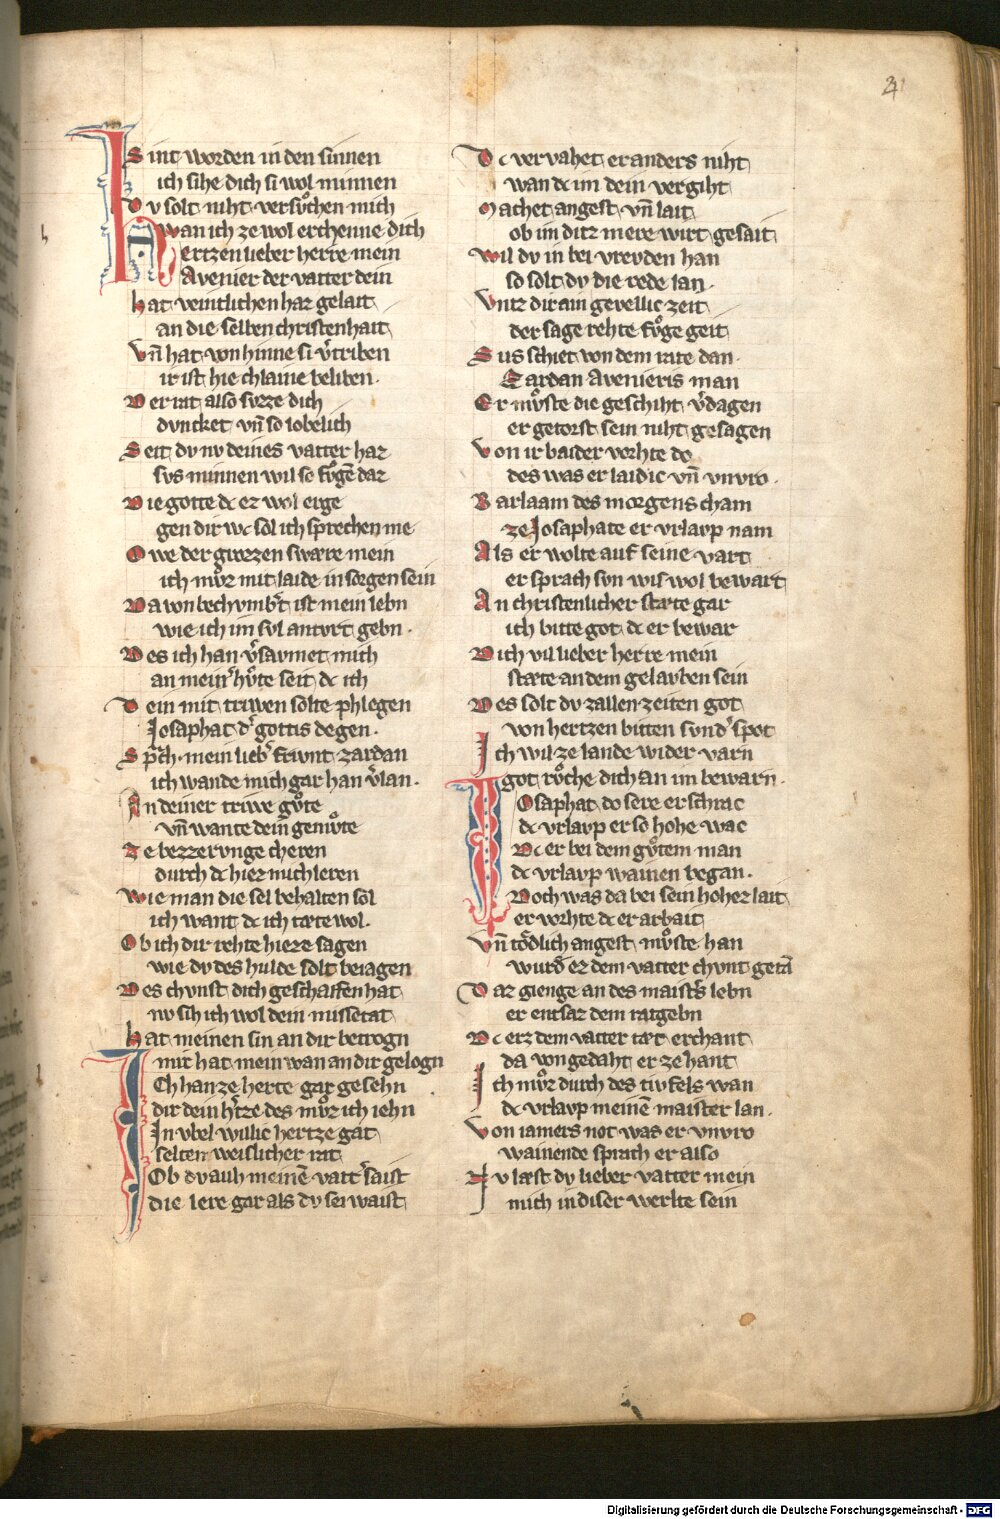 24
Sint worden in den sinnen
ich sihe dich si wol minnen
Dv solt niht versvͦchen mich
wan ich ze wol erchenne dich
Hertzen lieber herre mein
Avenier der vatter dein
hat veintlichen haz gelait
an die selben christenhait
Vn̄ hat von hinne si v̓triben
ir ist hie chlaine beliben.
Wer rat also svzze dich
dvncket vn̄ so lobelich
Seit dv nv deines vatter haz
svs minnen wil so fvͦgē daz
Wie gotte dc ez wol erge
gen dir wc sol ich sprechen me
Owe der grozen swære mein
ich mvͦz mit laide in sorgen sein
Da von bechvmb̓t ist mein lebn
wie ich im svl antvrt gebn.
Des ich han v̓savmet mich
an mein̓ hvͦte seit dc ich
Dein mit triwen solte phlegen
Josaphat d̓ gottis degen.
Sp̄ch. mein lieb̓ frivnt zardan
ich wande mich gar han v̓lan.
An deiner triwe gvͦte
vn̄ wante dein gemvͦte
Ze bezzervnge cheren
durch dc hiez mich leren
Wie man die sel behalten sol
ich want dc ich tæte wol.
Ob ich dir rehte hieze sagen
wie dv des hulde solt beiagen
Des chvnst dich geschaffen hat
nv sih ich wol dein missetat
Hat meinen sin an dir betrogn
mir hat mein wan an dir gelogn
Ich han ze herte gar gesehn
dir dein h̓tze des mvͦz ich iehn
In vbel willic hertze gat
selten weislicher rat
Ob dv auh meinē vatt̓ saist
die lere gar als dv sei waist
Dc vervahet er anders niht
wan dc im dein vergiht
Machet angest vn̄ lait
ob im ditz mere wirt gesait
Wil dv in bei vrevden han
so solt dv die rede lan.
Vntz dir ain gevellic zeit
der sage rehte fvͦge geit
Sus schiet von dem rate dan.
Zardan Avenieris man
Er mvͦste die geschiht v̓dagen
er getorst sein niht gesagen
Von ir baider vorhte do
des was er laidic vn̄ vnvro.
Barlaam des morgens cham
ze Josaphate er vrlavp nam
Als er wolte auf seine vart
er sprach svn wis wol bewart
An christenlicher stæte gar
ich bitte got dc er bewar
Dich vil lieber herre mein
stæte an dem gelavben sein
Des solt dv zallen zeiten got
von hertzen bitten svnd̓ spot
Ich wil ze lande wider varn
got rvͦche dich an im bewarn.
Josaphat do sere erschrac
dc vrlavp er so hohe wac
Dc er bei dem gvͦtem man
dc vrlavp wainen began.
Doch was da bei sein hoher lait
er vorhte dc er arbait
Vn̄ tœdlich angest mvͦste han
wurd̓ ez dem vatter chvnt getā
Daz gienge an des maist̓s lebn
er entsaz dem ratgebn
Dc erz dem vatter tæt erchant
da von gedaht er ze hant
Ich mvͦz durch des tivfels wan
dc vrlavp meinē maister lan.
Von iamers not was er vnvro
wainende sprach er also
Nv læst dv lieber vatter mein
mich in diser werlte sein
Digitalisierung gefördert durch die Deutsche Forschungsgemeinschaft - DFG